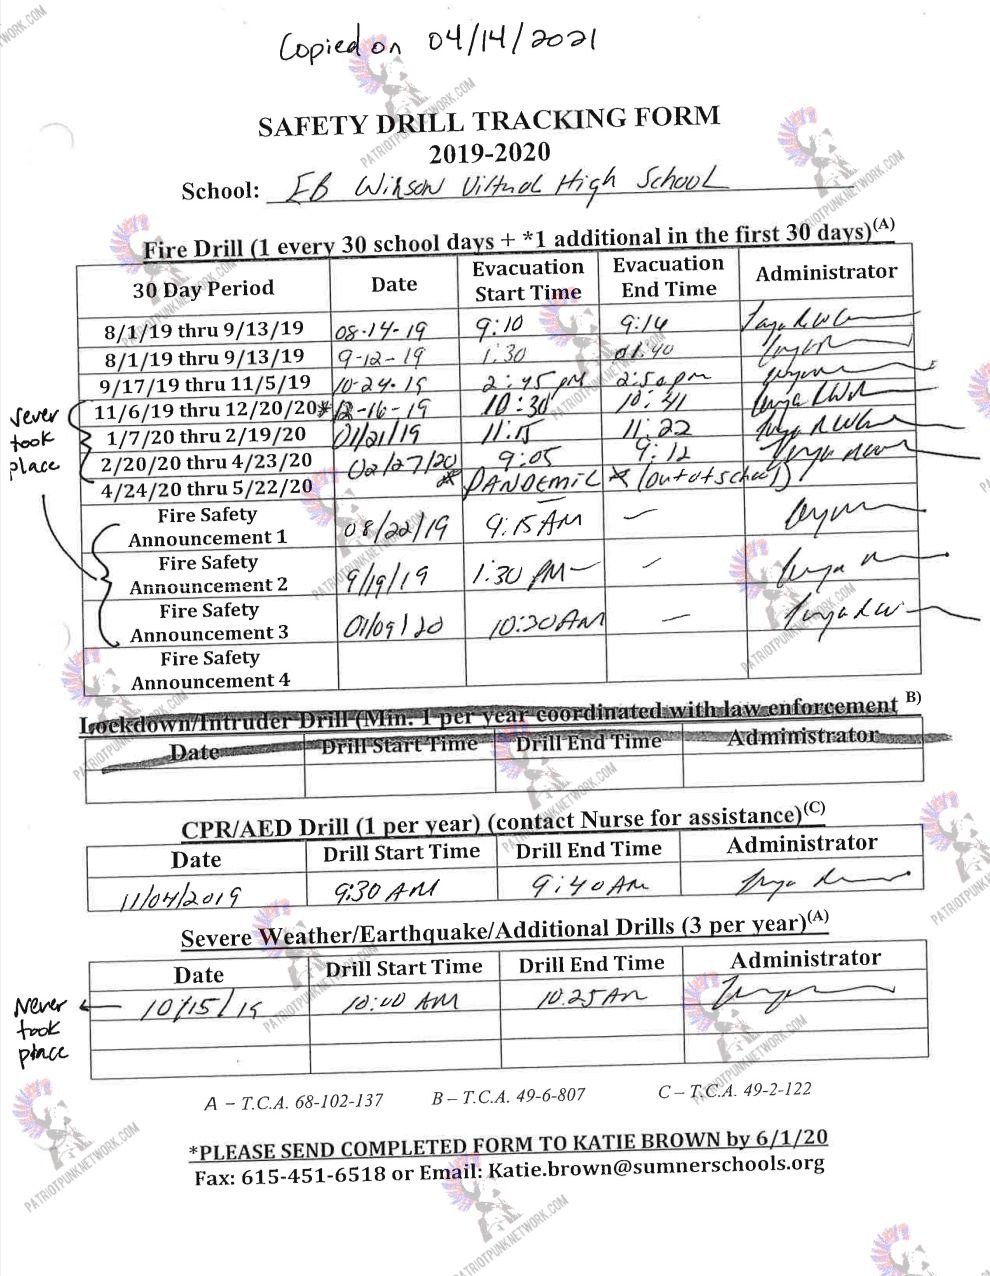 Copied on 04/14/2021
SAFETY DRILL TRACKING FORM
2019-2020
School: EB Wilson Virtual High School
Fire Drill (1 every 30 school days + *1 additional in the first 30 days)(A)
30 Day Period Date Evacuation Start Time Evacuation End Time Administrator
8/1/19 thru 9/13/19 08-14-19 9:10 9:14
8/1/19 thru 9/13/19 9-12-19 1:30 01:40
9/17/19 thru 11/5/19 10-24-19 2:45 pm 2:50 pm
never took place
11/6/19 thru 12/20/20* 12-16-19 10:30 10:41
1/7/20 thru 2/19/20 01/21/19 11:15 11:22
2/20/20 thru 4/23/20 02/27/20 9:05 9:12
4/24/20 thru 5/22/20 * PANDEMIC * (out of school)
Fire Safety Announcement 1 08/22/19 9:15 AM –
Fire Safety Announcement 2 9/19/19 1:30 PM – –
Fire Safety Announcement 3 01/09/20 10:30 AM –
Fire Safety Announcement 4
Lockdown/Intruder Drill (Min. 1 per year coordinated with law enforcement B)
Date Drill Start Time Drill End Time Administrator
CPR/AED Drill (1 per year) (contact Nurse for assistance)(C)
Date Drill Start Time Drill End Time Administrator
11/04/2019 9:30 AM 9:40 AM
Severe Weather/Earthquake/Additional Drills (3 per year)(A)
Date Drill Start Time Drill End Time Administrator
Never took place
10/15/19 10:00 AM 10:25 AM
A – T.C.A. 68-102-137 B – T.C.A. 49-6-807 C – T.C.A. 49-2-122
*PLEASE SEND COMPLETED FORM TO KATIE BROWN by 6/1/20
Fax: 615-451-6518 or Email: Katie.brown@sumnerschools.org
PATRIOTPUNKNETWORK.COM